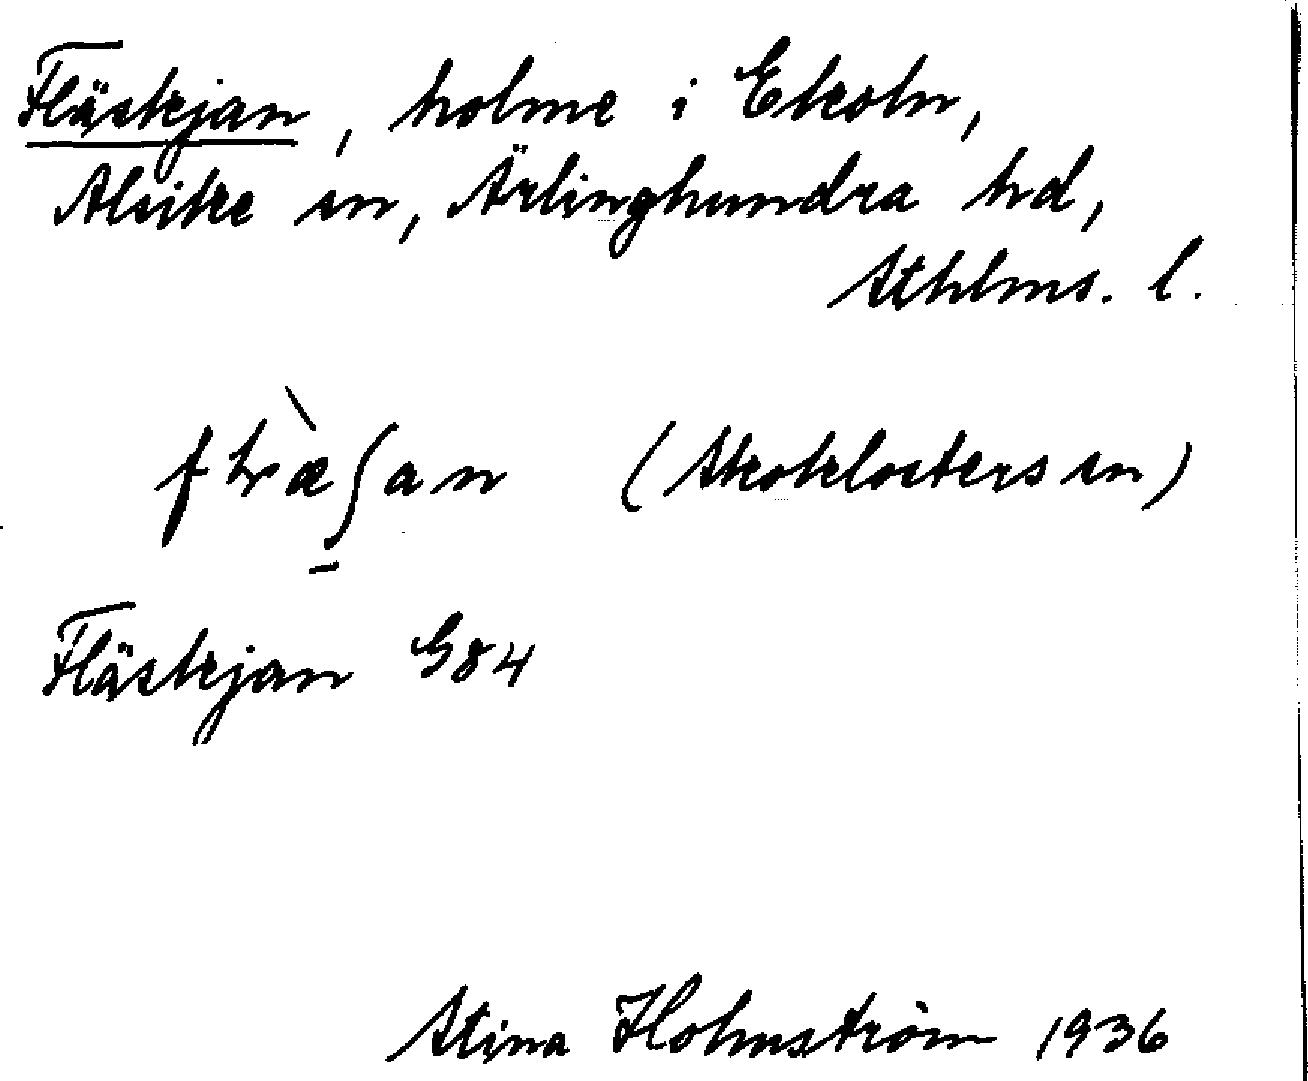 Fläskjan, holme i Ekoln,
Alsike sn, Ärlinghundra hd,
Sthlms. l.
(Skoklosters sn)
Fläskjan G84
Stina Holmström 1936